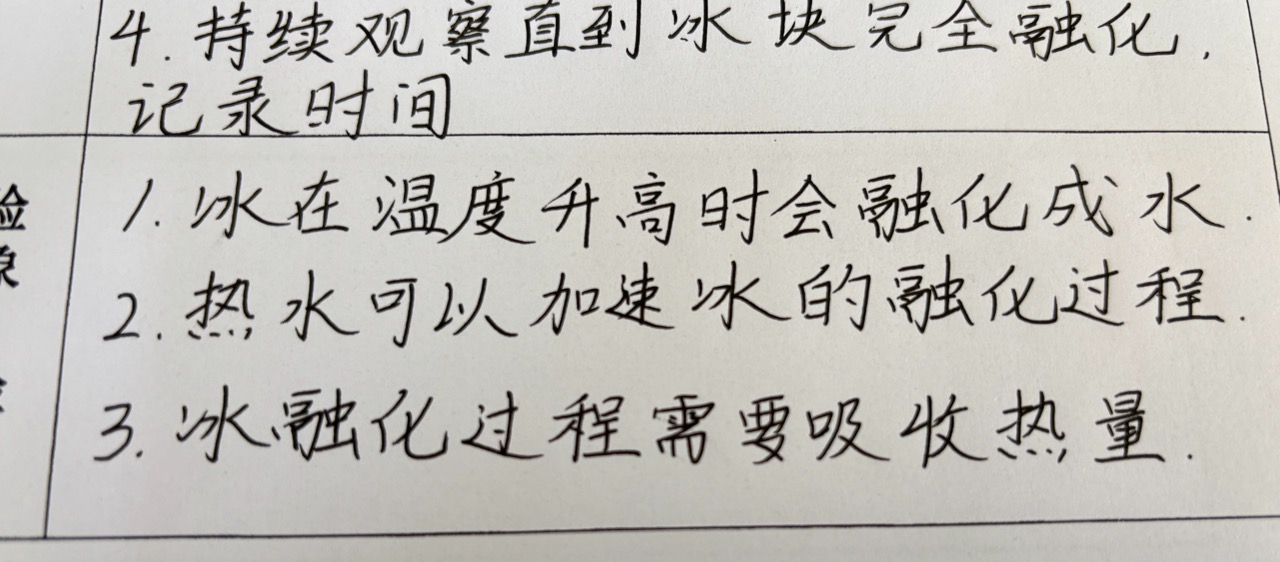 4. 持续观察直到冰块完全融化,
记录时间
验
象
1. 冰在温度升高时会融化成水.
2. 热水可以加速冰的融化过程.
3. 冰融化过程需要吸收热量.